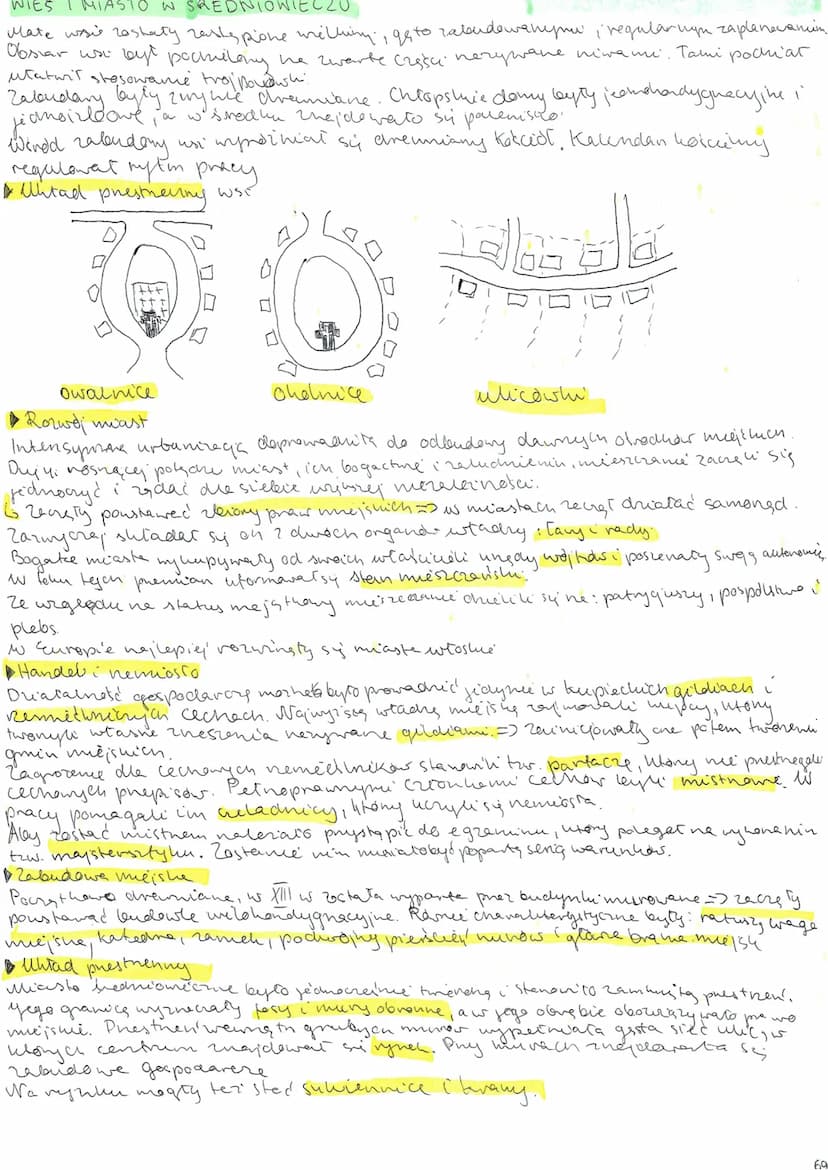 WIEŚ I MIASTO W ŚREDNIOWIECZU
Małe wsie zostały zastąpione wielkimi, gęsto zabudowanymi i regularnym zaplanowaniem
Obszar wsi był podzielony na zwarte części nazywane niwami. Taki podział
ułatwił stosowanie trójpolówki.
Zabudowy były zwykle drewniane. Chłopskie domy były jednokondygnacyjne i
jednoizbowe, a w środku znajdowało się palenisko.
Wśród zabudowy wsi wyróżniał się drewniany kościół. Kalendarz kościelny
regulował rytm pracy
▶ Układ przestrzenny wsi
owalnice okolnice ulicówki
▶ Rozwój miast
Intensywna urbanizacja doprowadziła do odbudowy dawnych ośrodków miejskich.
Dzięki rosnącej potędze miast, ich bogactwie i zaludnieniu, mieszczanie zaczęli się
jednoczyć i żądać dla siebie większej niezależności.
↳ zaczęły powstawać zbiory praw miejskich => w miastach zaczął działać samorząd.
Zazwyczaj składał się on z dwóch organów władzy: ławy i rady.
Bogate miasta wykupywały od swoich właścicieli urzędy wójtów i poszerzały swoją autonomię
W toku tych przemian uformował się stan mieszczański.
Ze względu na status majątkowy mieszczanie dzielili się na: patrycjuszy, pospólstwo i
plebs.
W Europie najlepiej rozwinęły się miasta włoskie
▶ Handel i rzemiosło
Działalność gospodarczą można było prowadzić jedynie w kupieckich gildiach i
rzemieślniczych cechach. Najwyższą władzę miejską zajmowali kupcy, którzy
tworzyli własne zrzeszenia nazywane gildiami. => zainicjowały one potem tworzenie
gmin miejskich.
Zagrożenie dla cechowych rzemieślników stanowili tzw. partacze, którzy nie przestrzegali
cechowych przepisów. Pełnoprawnymi członkami cechów byli mistrzowie. W
pracy pomagali im czeladnicy, którzy uczyli się rzemiosła.
Aby zostać mistrzem należało przystąpić do egzaminu, który polegał na wykonaniu
tzw. majstersztyku. Zostanie nim musiało być poparte serią warunków.
▶ Zabudowa miejska
Początkowo drewniane, w XIII w została wyparta przez budynki murowane => zaczęły
powstawać budowle wielokondygnacyjne. Równie charakterystyczne były: ratusz, waga
miejska, katedra, zamek, podwójny pierścień murów i główna brama miejska
▶ Układ przestrzenny
Miasto średniowieczne było jednocześnie twierdzą i stanowiło zamkniętą przestrzeń.
Jego granicę wyznaczały fosy i mury obronne, a w jego obrębie obowiązywało prawo
miejskie. Przestrzeń wewnątrz grubych murów wypełniała gęsta sieć ulic, w
których centrum znajdował się rynek. Przy murach znajdowała się
zabudowa gospodarcza
Na rynku mogły też stać sukiennice i kramy.
69